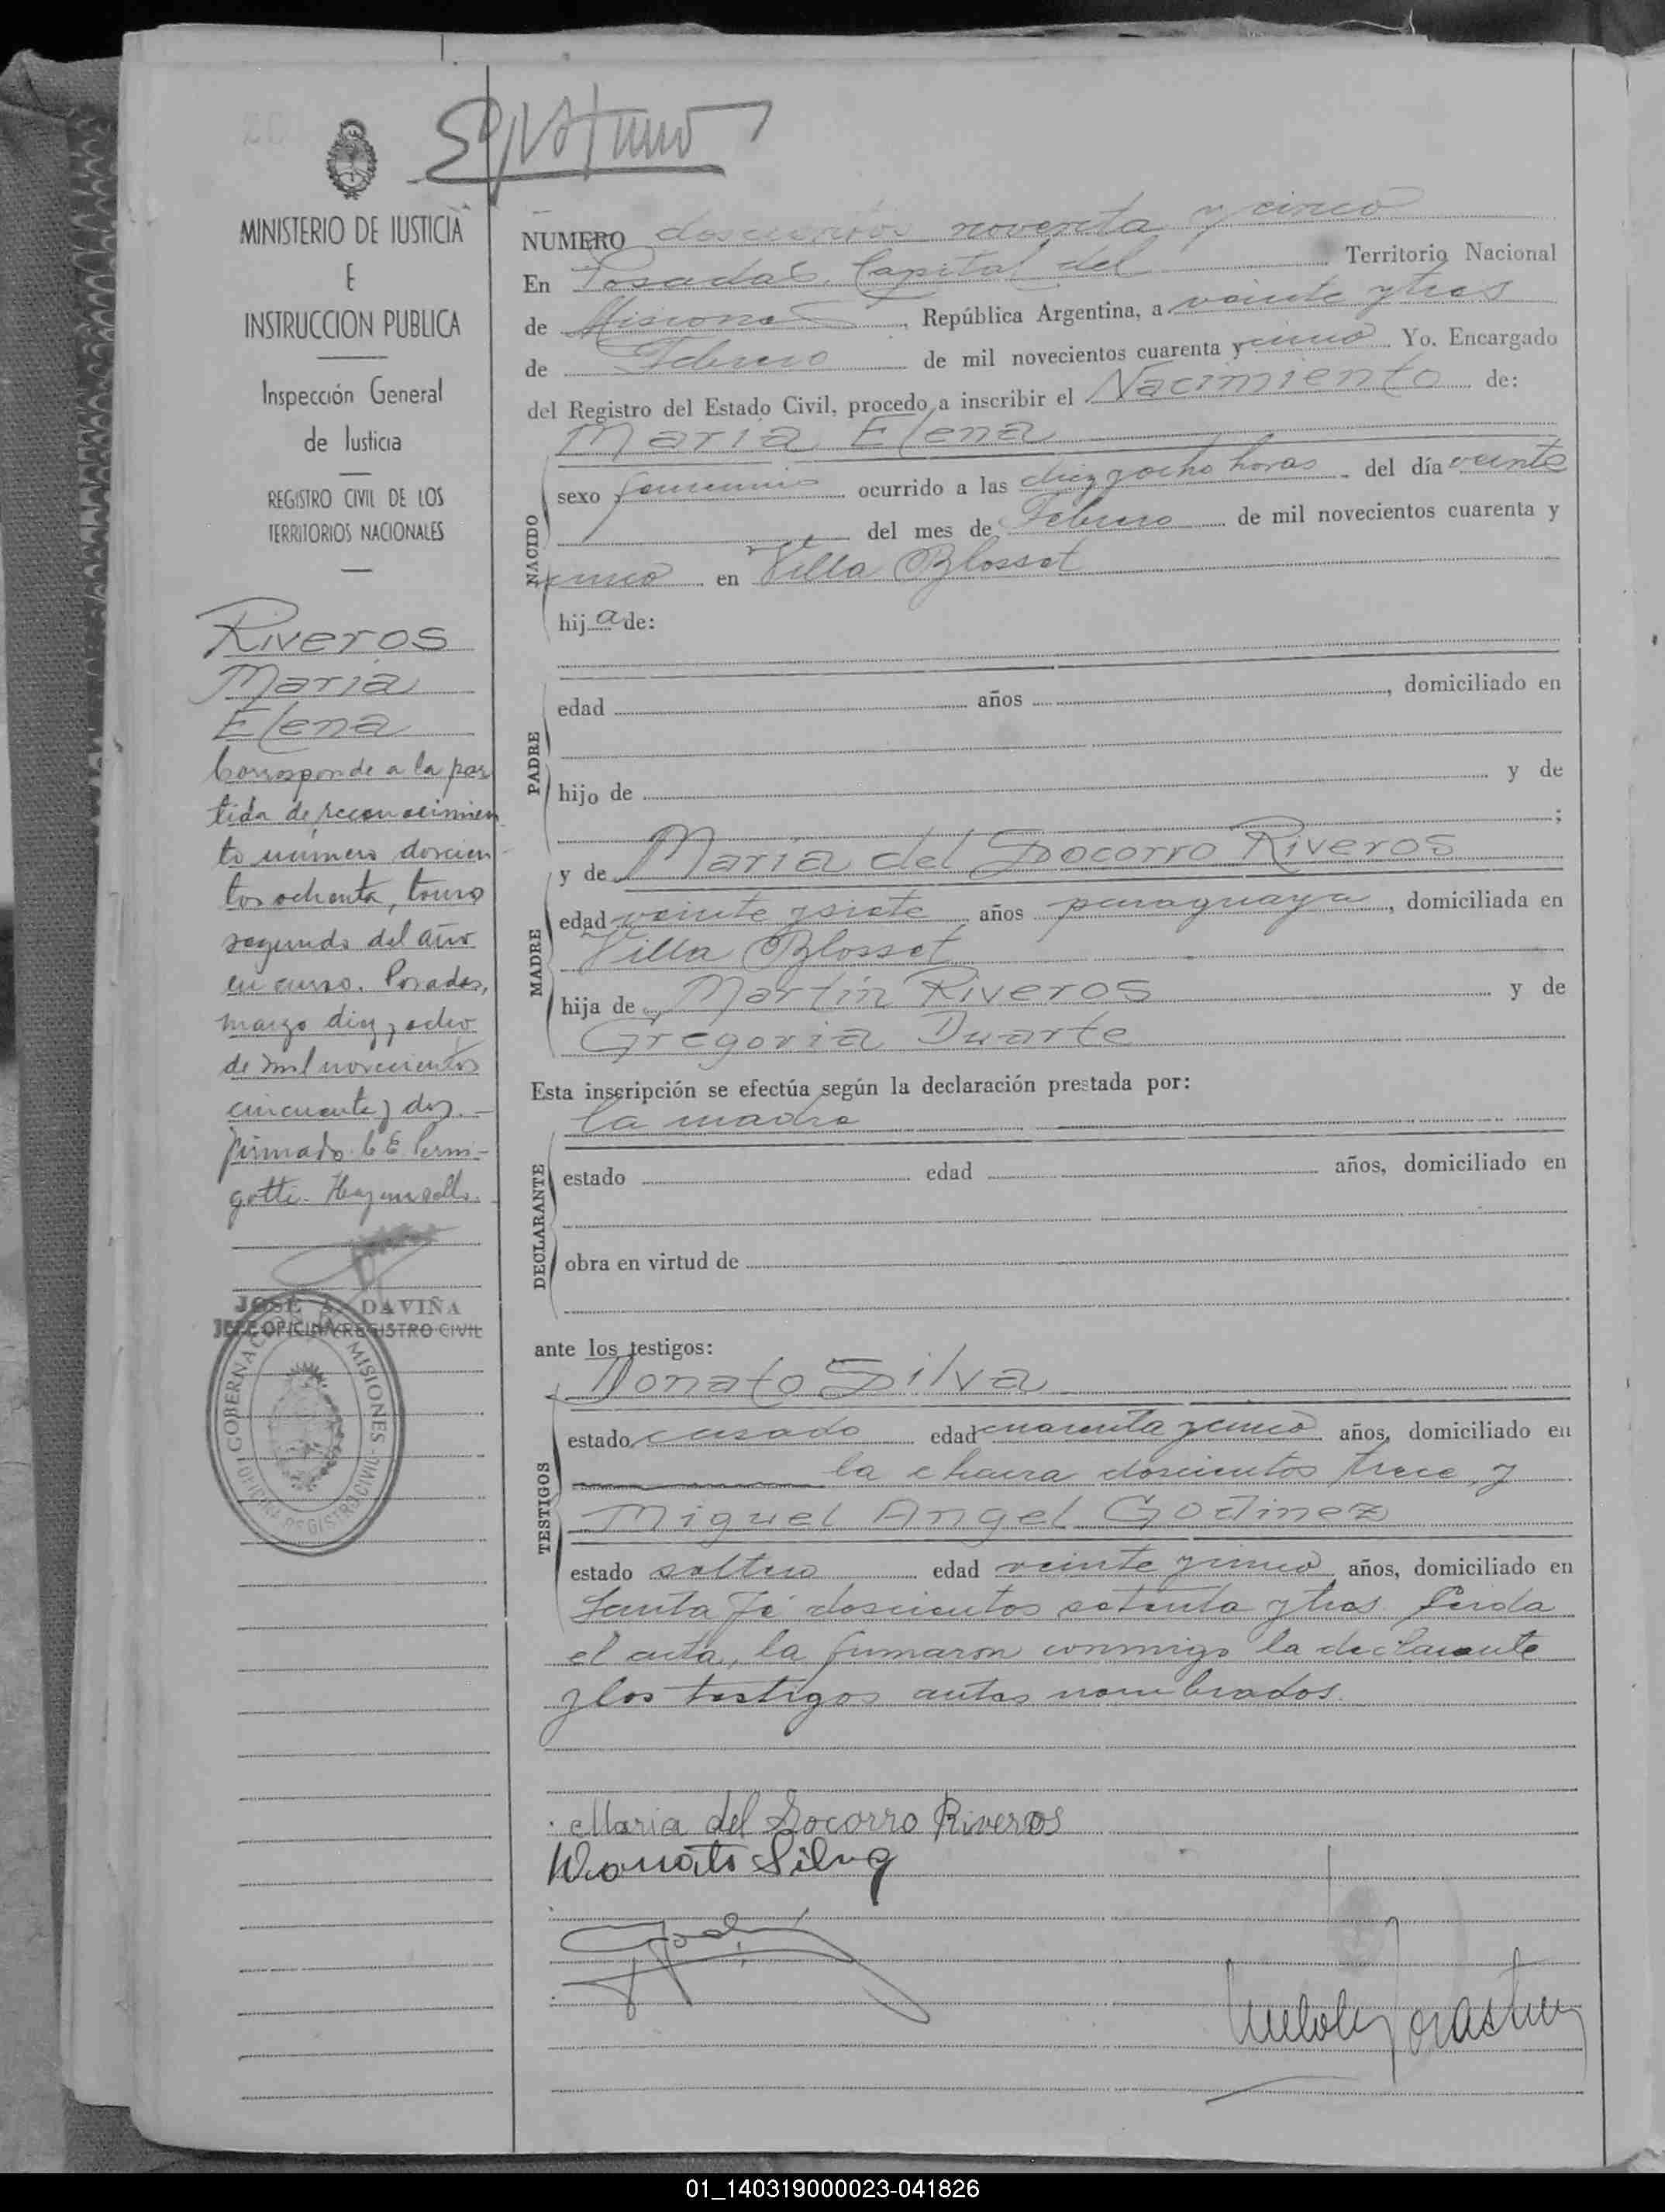 MINISTERIO DE JUSTICIA
E
INSTRUCCION PUBLICA
Inspección General
de Justicia
REGISTRO CIVIL DE LOS
TERRITORIOS NACIONALES
Riveros
Maria
Elena
Corresponde a la par
tida de reconocimien
to número doscien
tos ochenta, tomo
segundo del año
en curso. Posadas,
marzo diez y ocho
de mil novecientos
cincuenta y dos.-
firmado
JOSE A. DAVIÑA
JEFE OFICINA REGISTRO CIVIL
GOBERNACION MISIONES
OFICINA REGISTRO CIVIL
NUMERO doscientos noventa y cinco
En Posadas, Capital del Territorio Nacional
de Misiones, República Argentina, a veinte y tres
de Febrero de mil novecientos cuarenta y cinco Yo, Encargado
del Registro del Estado Civil, procedo a inscribir el Nacimiento de:
Maria Elena
NACIDO
sexo femenino ocurrido a las diez y ocho horas del día veinte
del mes de Febrero de mil novecientos cuarenta y
cinco en Villa Blosset
hij a de:
PADRE
edad años , domiciliado en
hijo de y de
;
MADRE
y de Maria del Socorro Riveros
edad veinte y siete años paraguaya, domiciliada en
Villa Blosset
hija de Martín Riveros y de
Gregoria Duarte
Esta inscripción se efectúa según la declaración prestada por:
la madre
DECLARANTE
estado edad años, domiciliado en
obra en virtud de
ante los testigos:
Donato Silva
TESTIGOS
estado casado edad cuarenta y cinco años, domiciliado en
la chacra doscientos trece, y
Miguel Angel Godinez
estado soltero edad veinte y cinco años, domiciliado en
Santa Fé doscientos setenta y tres. Leida
el acta, la firmaron conmigo la declarante
y los testigos antes nombrados.
Maria del Socorro Riveros
Donato Silva
01_140319000023-041826